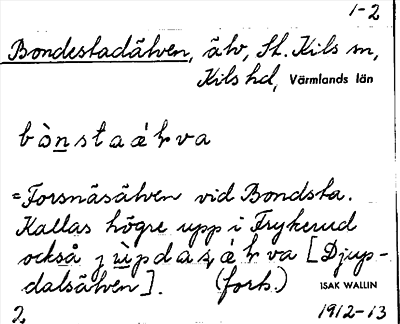 1-2
Bondestadälven, älv, St. Kils sn,
Kils hd, Värmlands län
bònstaáꞎva
=Forsnäsälven vid Bondsta.
Kallas högre upp i Frykerud
också jùpdasáꞎva [Djup-
dalsälven]. (forts.) ISAK WALLIN
2, 1912-13